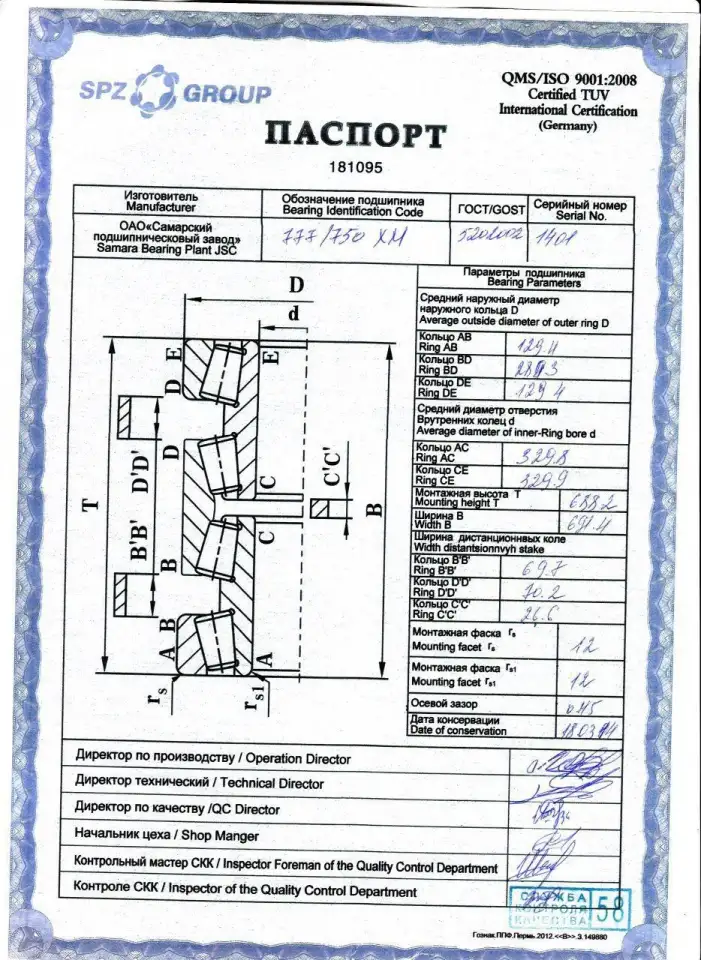 SPZ GROUP
QMS/ISO 9001:2008
Certified TUV
International Certification
(Germany)
ПАСПОРТ
181095
Изготовитель
Manufacturer
Обозначение подшипника
Bearing Identification Code
ГОСТ/GOST
Серийный номер
Serial No.
ОАО«Самарский
подшипническовый завод»
Samara Bearing Plant JSC
777/750 ХМ
5202002
1401
Параметры подшипника
Bearing Parameters
Средний наружный диаметр
наружного кольца D
Average outside diameter of outer ring D
Кольцо AB
Ring AB
129.4
Кольцо BD
Ring BD
Кольцо DE
Ring DE
129.4
Средний диаметр отверстия
Врутренних колец d
Average diameter of inner-Ring bore d
Кольцо AC
Ring AC
329.8
Кольцо CE
Ring CE
329.9
Монтажная высота T
Mounting height T
688.2
Ширина B
Width B
691.4
Ширина дистанционнвых коле
Width distantsionnvyh stake
Кольцо B'B'
Ring B'B'
69.7
Кольцо D'D'
Ring D'D'
70.2
Кольцо C'C'
Ring C'C'
26.6
Монтажная фаска rs
Mounting facet rs
12
Монтажная фаска rs1
Mounting facet rs1
12
Осевой зазор
0.45
Дата консервации
Date of conservation
D
d
E
E
D
D
D'D'
T
C
C'C'
B
B'B'
C
B
B
A
A
rs
rs1
Директор по производству / Operation Director
Директор технический / Technical Director
Директор по качеству /QC Director
Начальник цеха / Shop Manger
Контрольный мастер СКК / Inspector Foreman of the Quality Control Department
Контроле СКК / Inspector of the Quality Control Department
СЛУЖБА
КОНТРОЛЯ
КАЧЕСТВА
58
Гознак.ППФ.Пермь.2012.<<В>>.3.149880